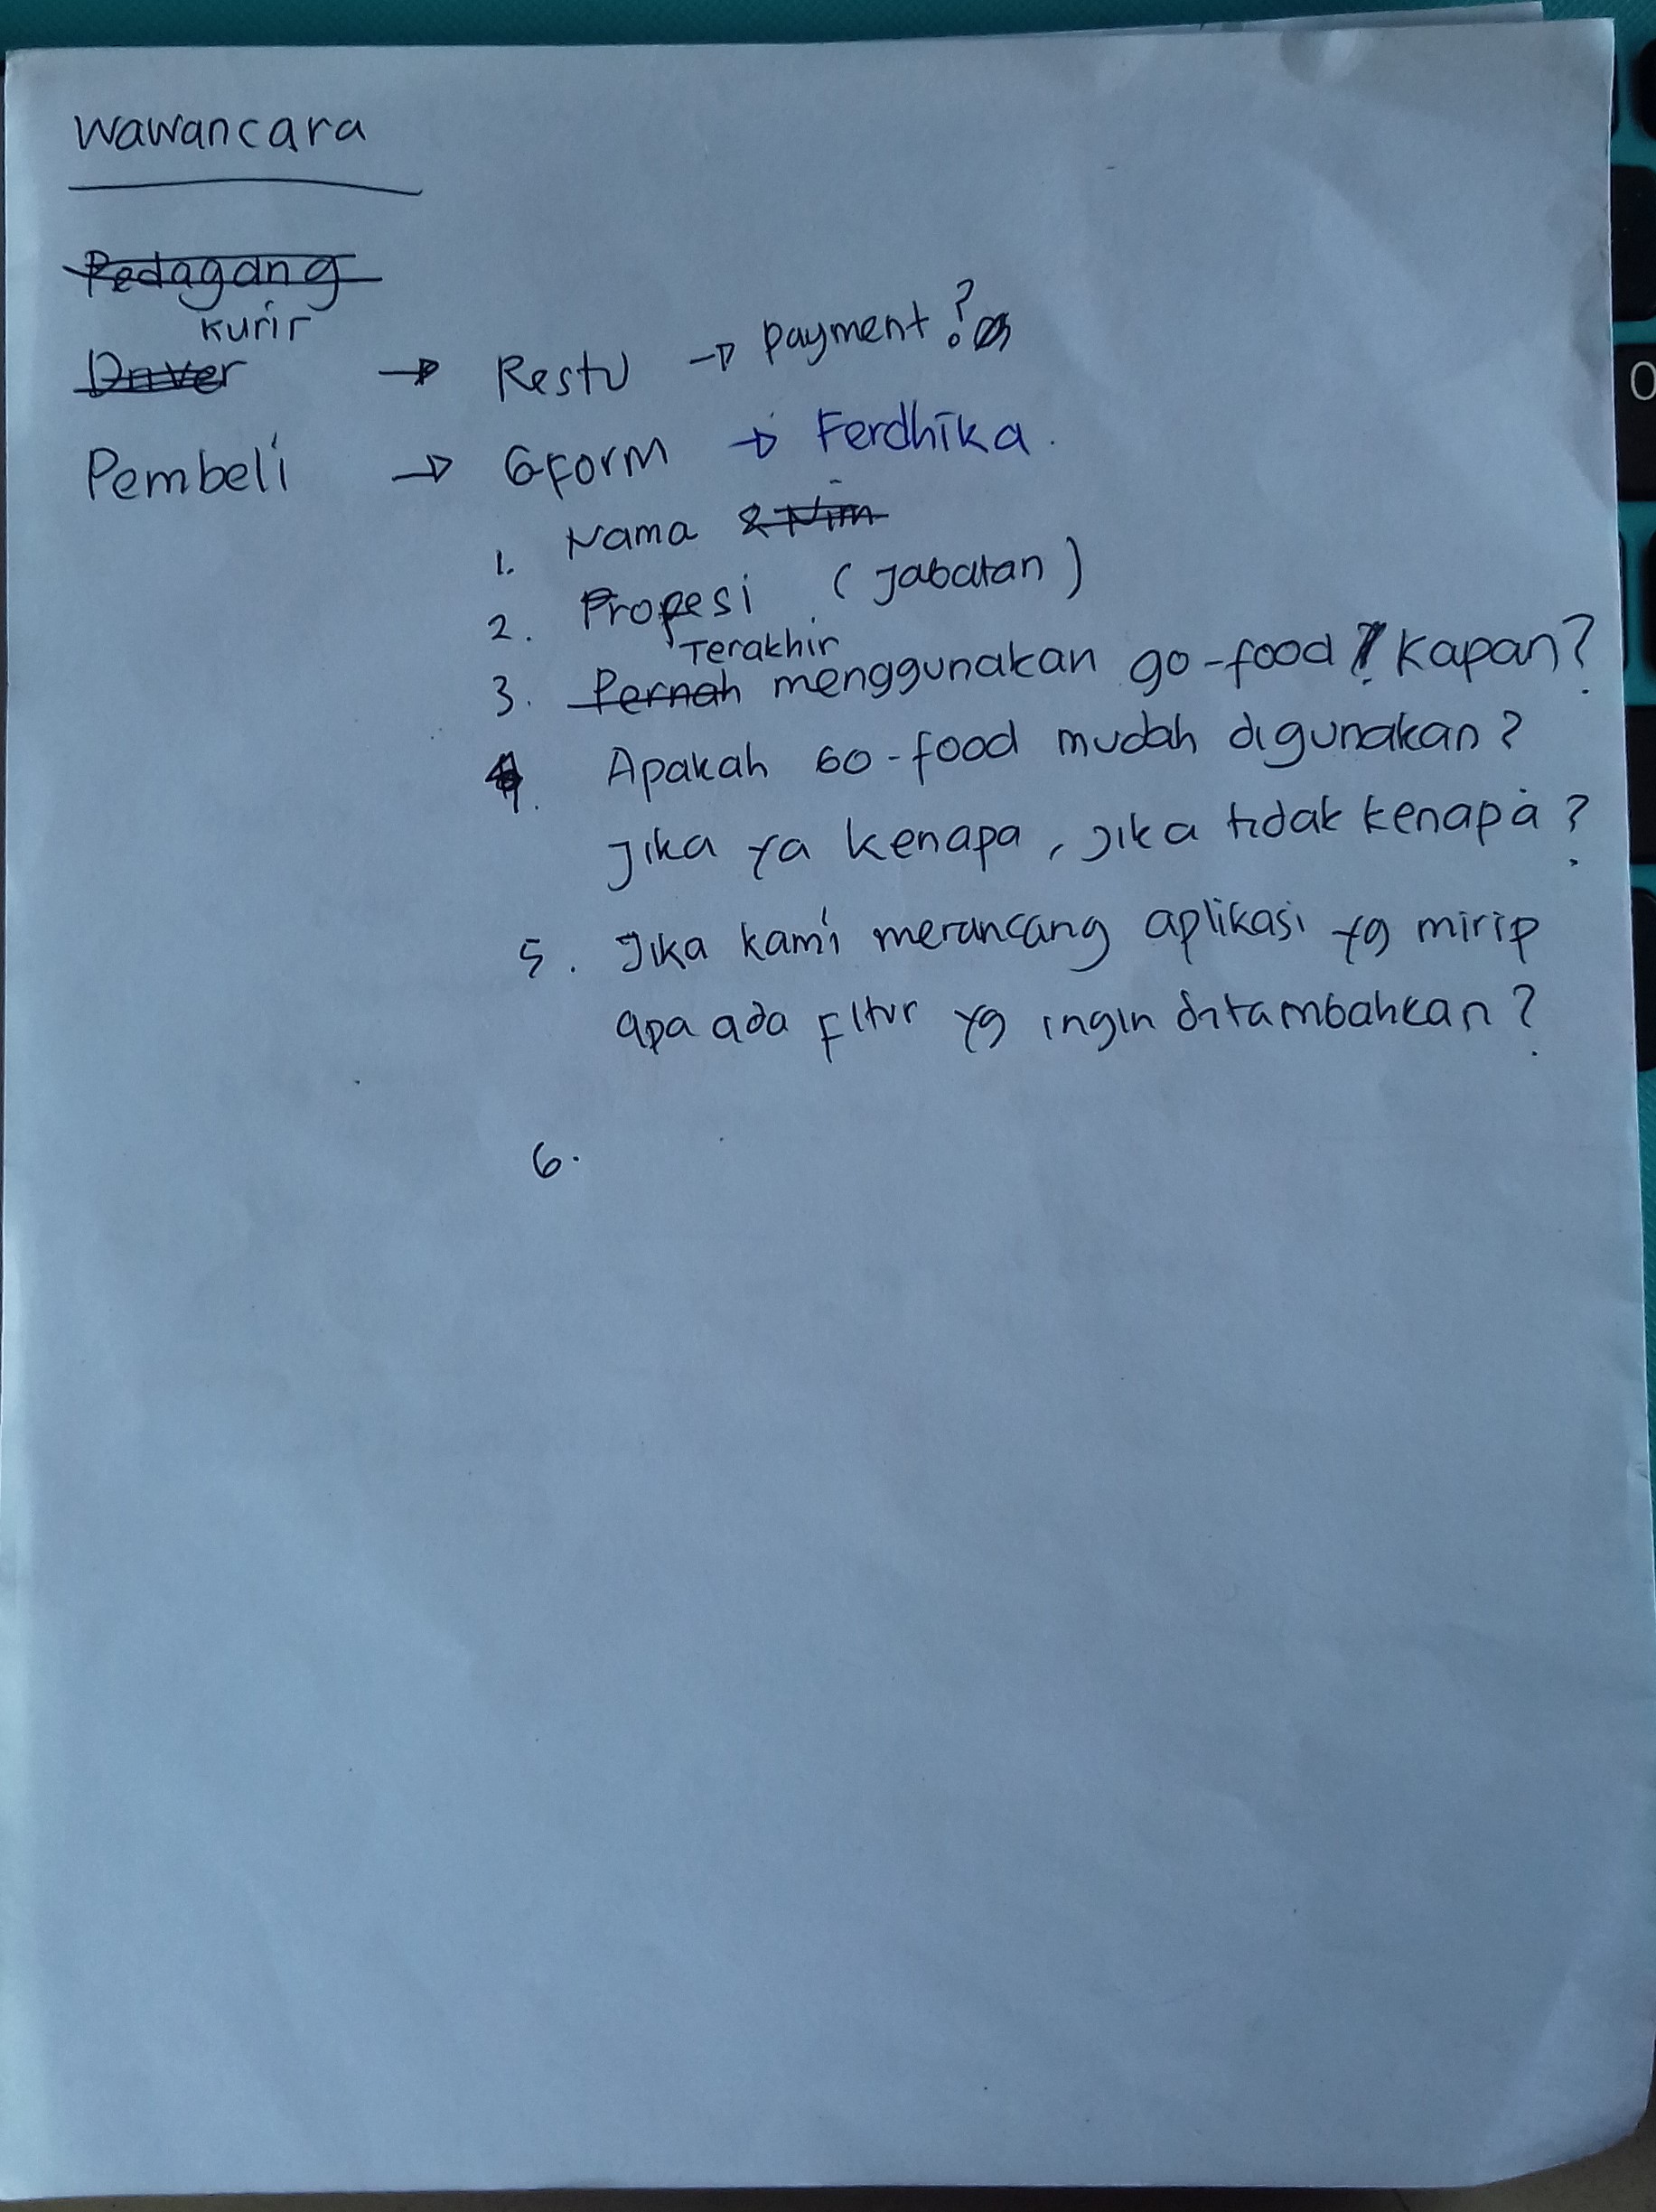 Wawancara
Pedagang
Kurir
Driver → Restu → payment?
Pembeli → Gform → Ferdhika.
1. Nama & Nim
2. Propesi (Jabatan)
Terakhir
3. Pernah menggunakan go-food? Kapan?
4. Apakah Go-food mudah digunakan?
Jika ya kenapa, jika tidak kenapa?
5. Jika kami merancang aplikasi yg mirip
apa ada Fitur yg ingin ditambahkan?
6.
0